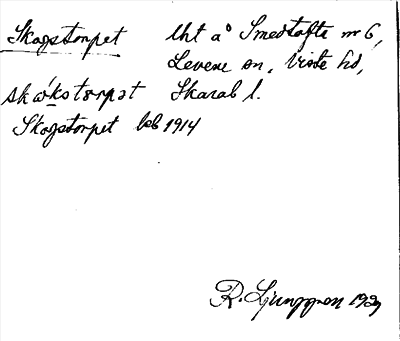 Skogstorpet lht å Smedtofte nr 6,
Levene sn, Viste hd,
Skarab l.
skὼkstɤrpət
Skogstorpet lsb 1914
R. Ljunggren 1929